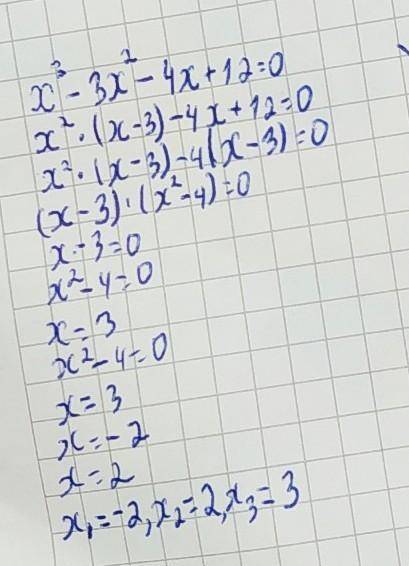 x³ - 3x² - 4x + 12 = 0
x² · (x - 3) - 4x + 12 = 0
x² · (x - 3) - 4(x - 3) = 0
(x - 3) · (x² - 4) = 0
x - 3 = 0
x² - 4 = 0
x = 3
x² - 4 = 0
x = 3
x = -2
x = 2
x₁ = -2, x₂ = 2, x₃ = 3